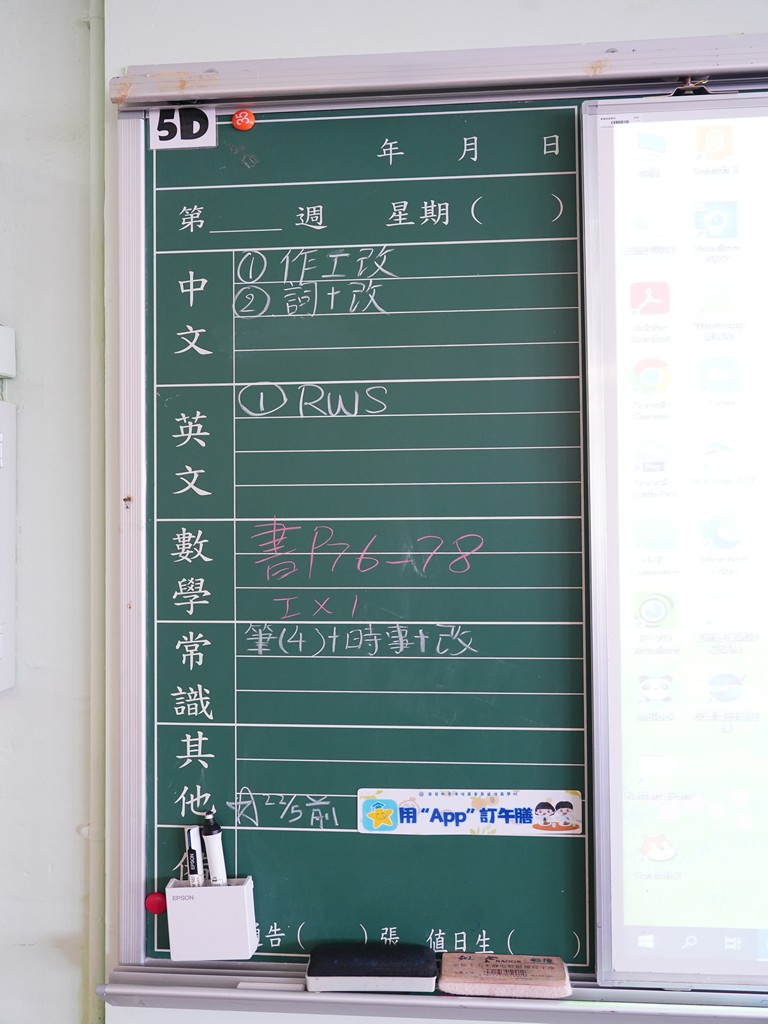 5D
年 月 日
第____週 星期( )
中文
① 作工改
② 詞+改
英文
① RWS
數學
書P76-78
工×1
常識
筆(4)+時事+改
其他
☆22/5前
用“App”訂午膳
EPSON
告( )張 值日生( )